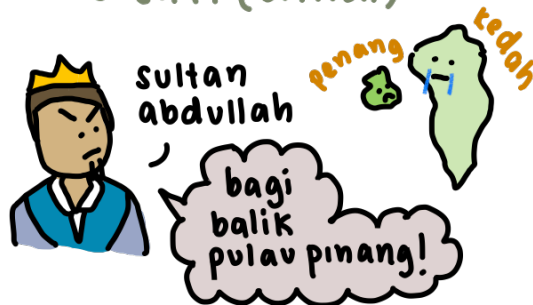 sultan
abdullah
penang
kedah
bagi
balik
pulau pinang!